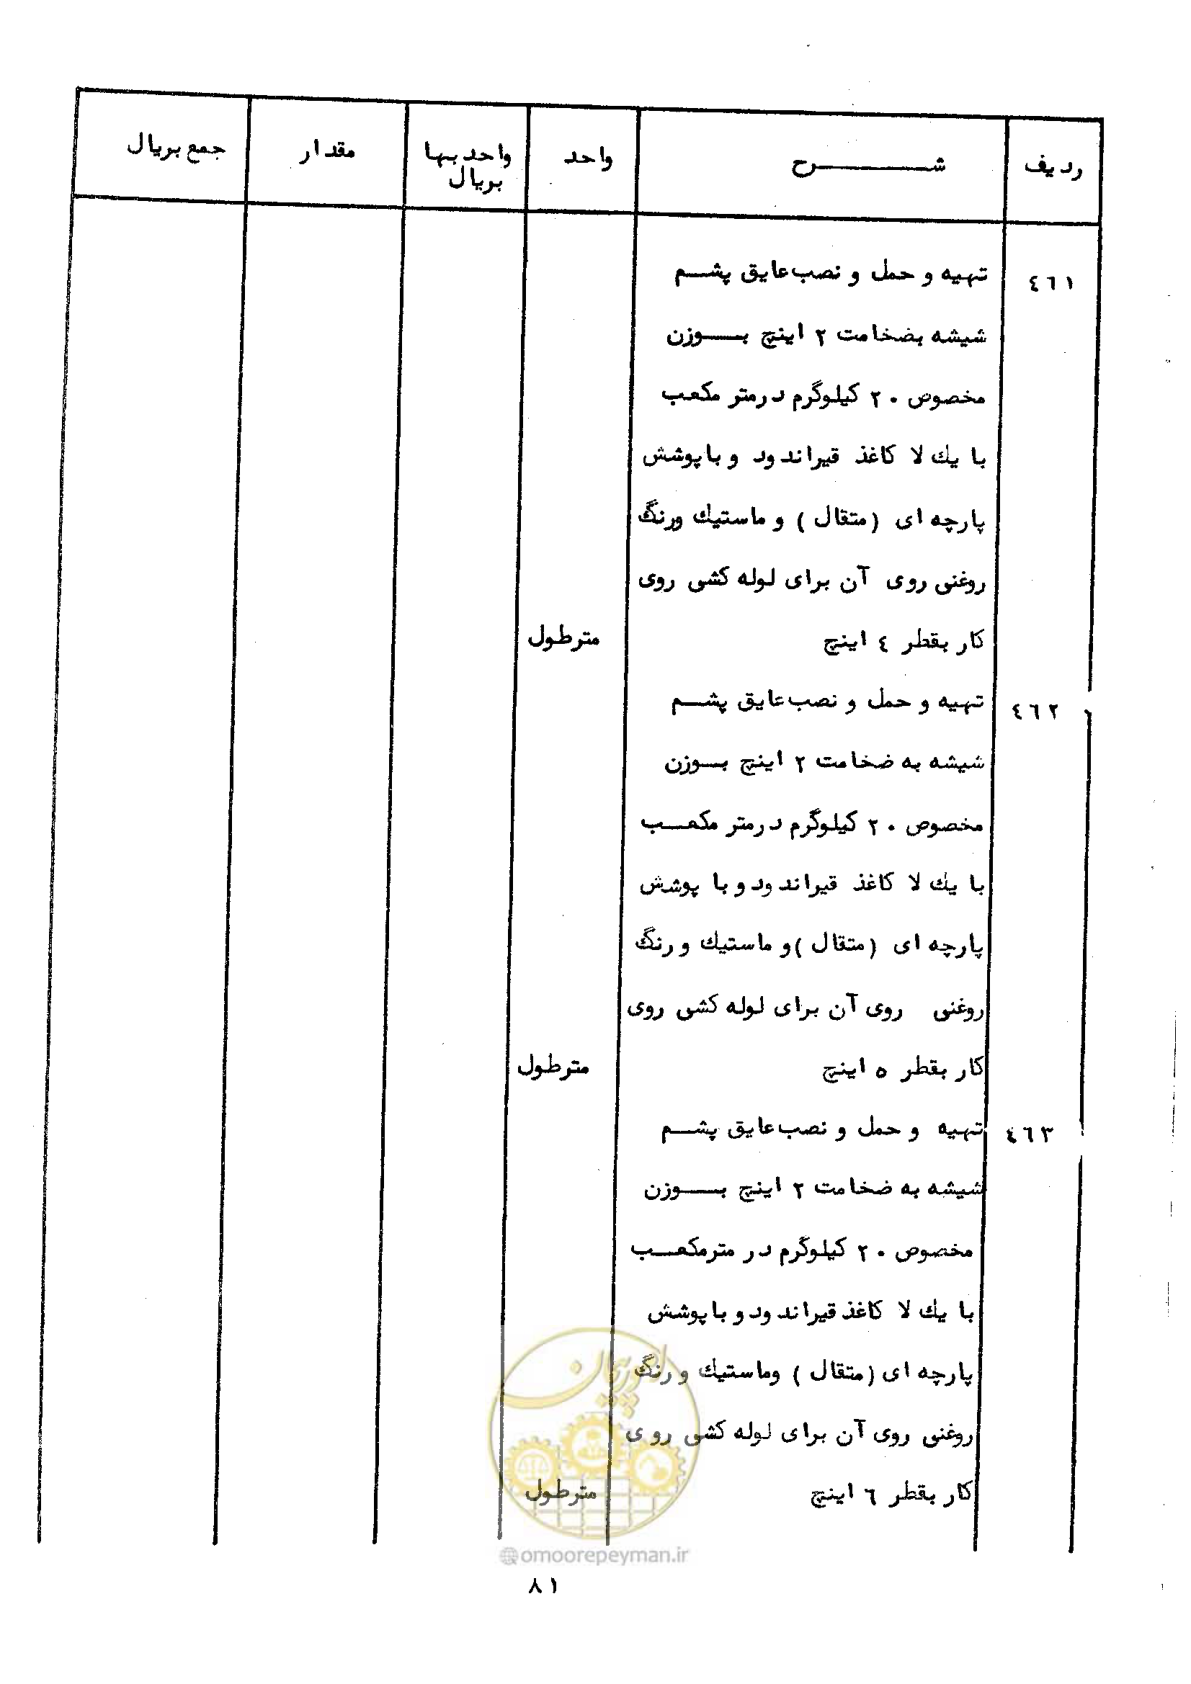 ردیف شرح واحد واحدبها بریال مقدار جمع بریال
٤٦١ تهیه و حمل و نصب عایق پشم
شیشه بضخامت ٢ اینچ بوزن
مخصوص ٢٠ کیلوگرم درمتر مکعب
با یك لا کاغذ قیراندود و باپوشش
پارچه ای (متقال) و ماستیك ورنگ
روغنی روی آن برای لوله کشی روی
کار بقطر ٤ اینچ مترطول
٤٦٢ تهیه و حمل و نصب عایق پشم
شیشه به ضخامت ٢ اینچ بوزن
مخصوص ٢٠ کیلوگرم درمتر مکعب
با یك لا کاغذ قیراندود و با پوشش
پارچه ای (متقال) و ماستیك و رنگ
روغنی روی آن برای لوله کشی روی
کار بقطر ٥ اینچ مترطول
٤٦٣ تهیه و حمل و نصب عایق پشم
شیشه به ضخامت ٢ اینچ بوزن
مخصوص ٢٠ کیلوگرم در مترمکعب
با یك لا کاغذ قیراندود و باپوشش
پارچه ای (متقال) وماستیك و رنگ
روغنی روی آن برای لوله کشی روی
کار بقطر ٦ اینچ مترطول
امور پیمان
@omoorepeyman.ir
٨١